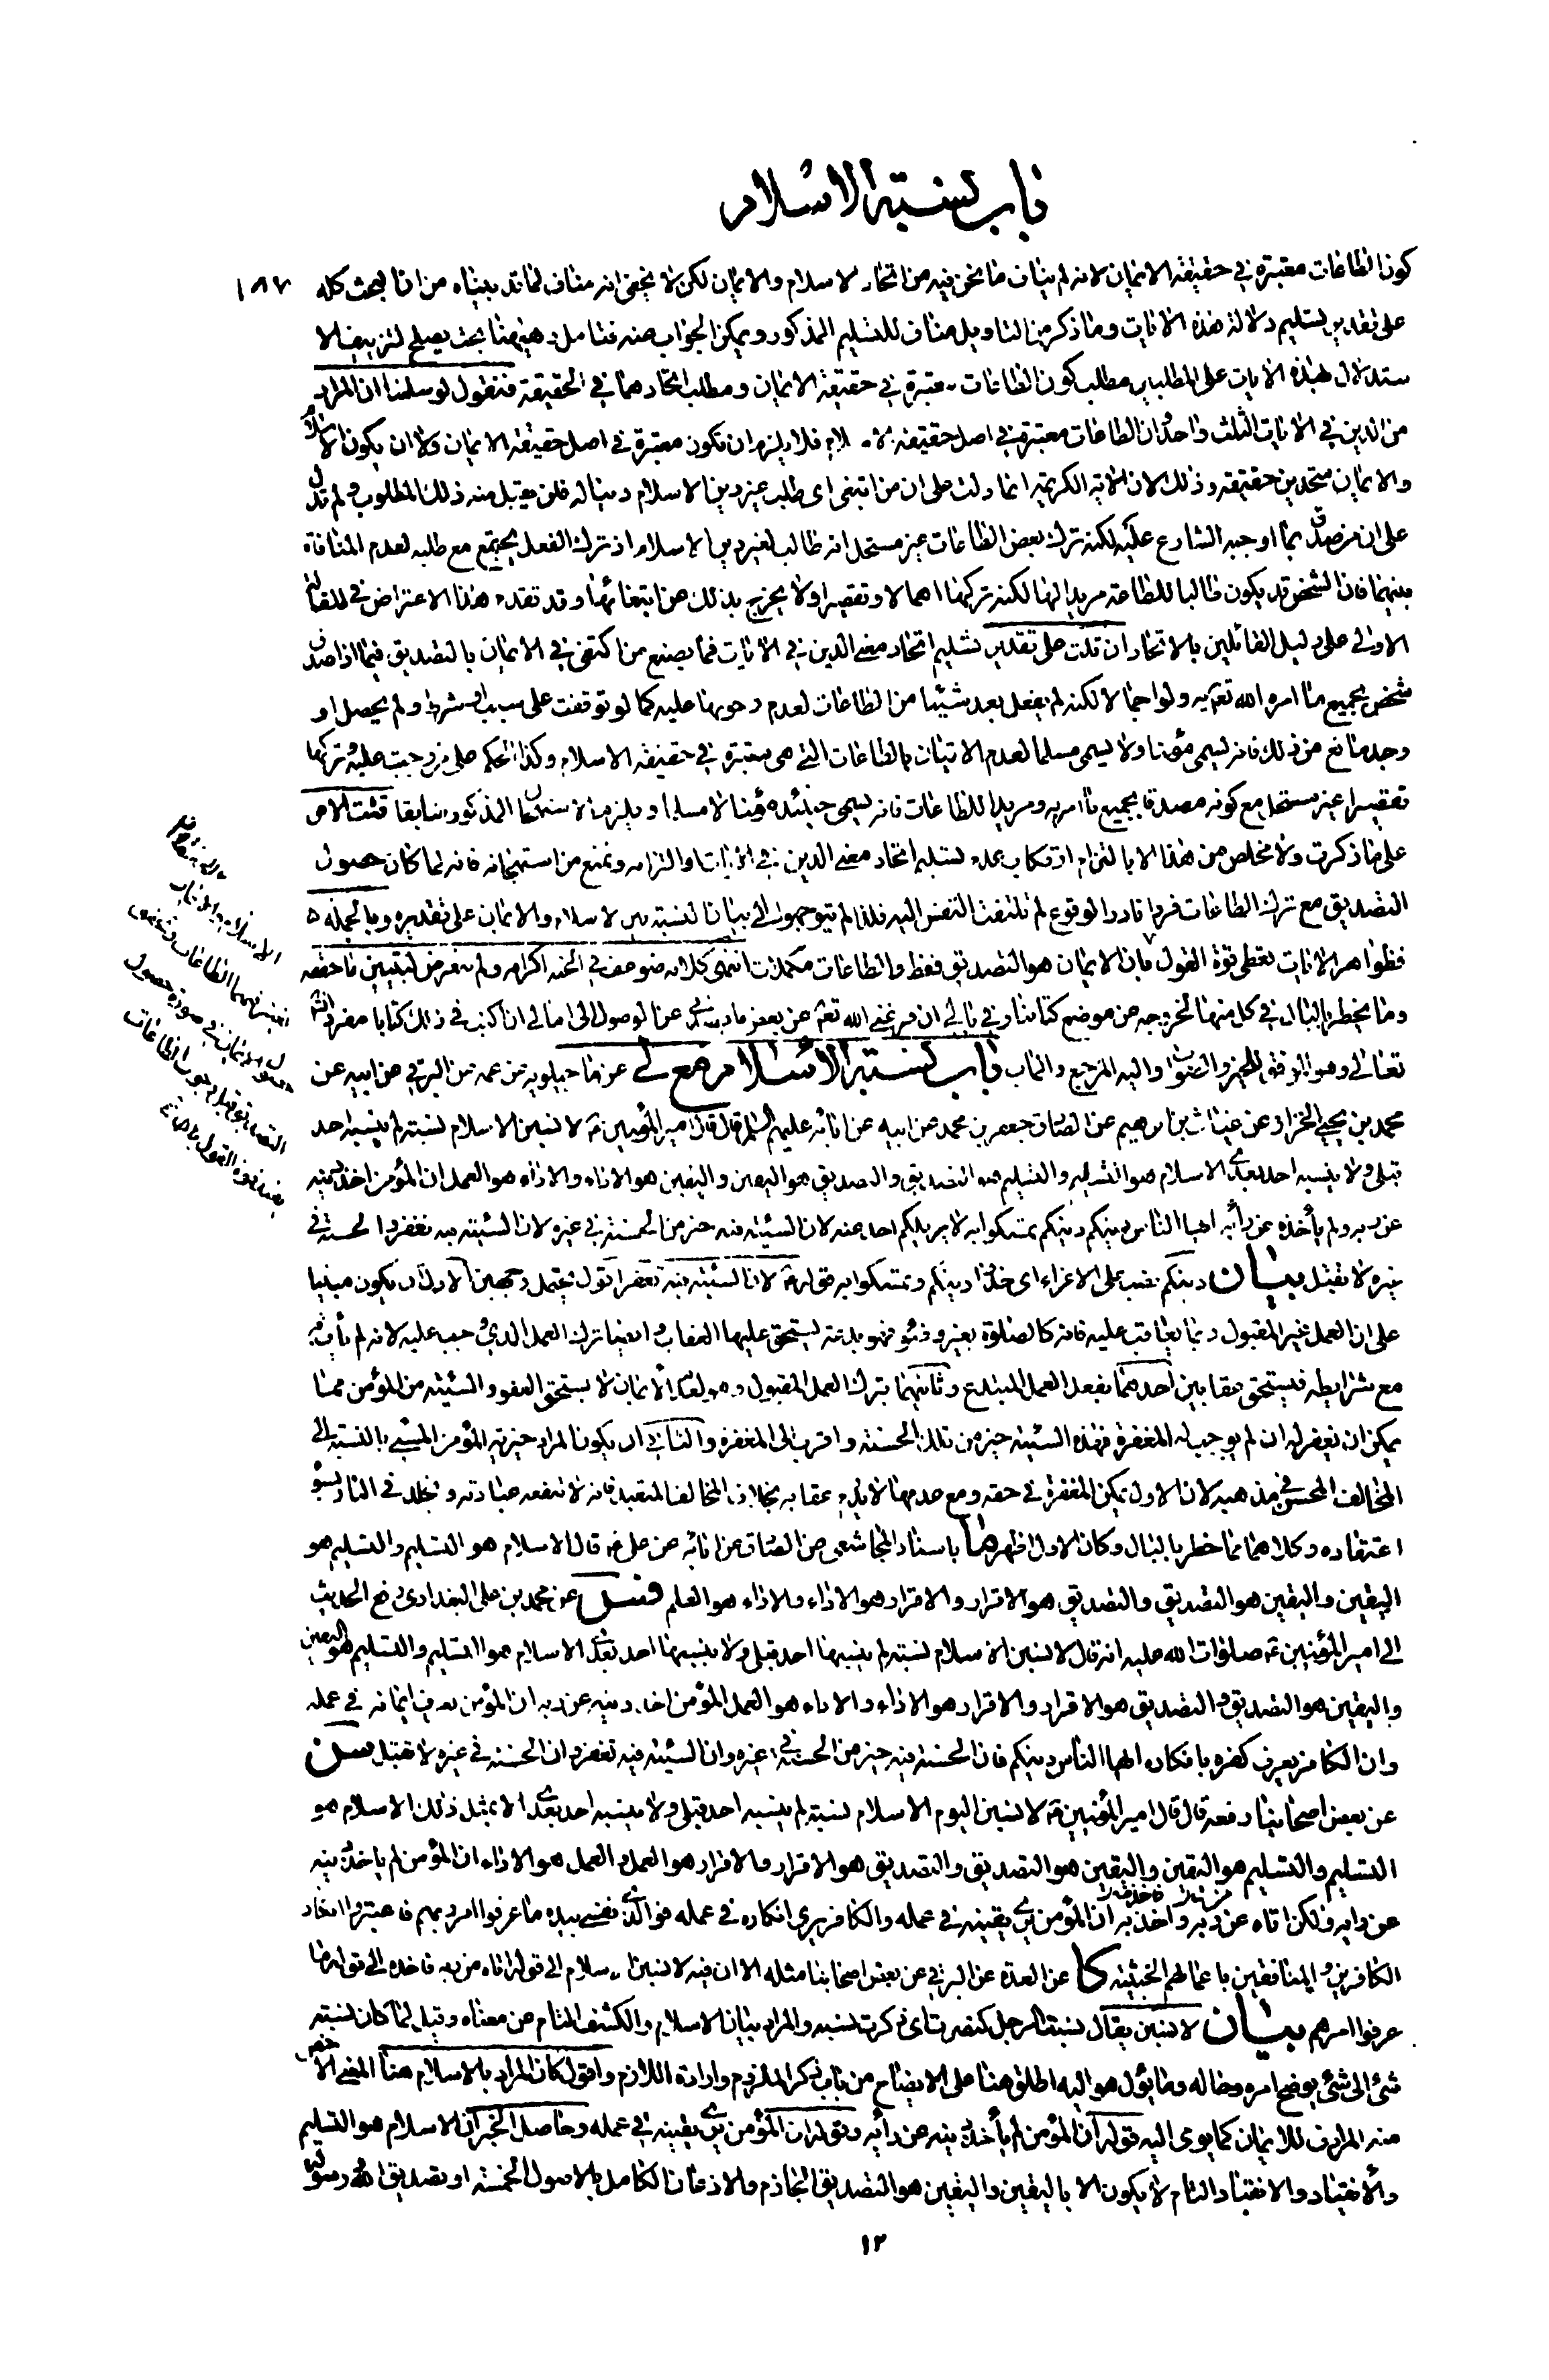 باب نسبة الاسلام
١٨٧
كون الطاعات معتبرة في حقيقة الايمان لانه لم يناف ما نحن فيه من اتحاد الاسلام والايمان لكن لا يخفى انه مناف لما قد بيناه من ان البحث كله
على تقدير تسليم دلالة هذه الايات وما ذكر من التاويل مناف للتسليم المذكور ويمكن الجواب عنه فتامل وهيهنا بحث يصلح لتزييف الا
ستدلال بهذه الايات على المطلبين مطلب كون الطاعات معتبرة في حقيقة الايمان ومطلب اتحادهما في الحقيقة فنقول لو سلمنا ان المراد
من الدين في الايات الثلث واحد وان الطاعات معتبرة في اصل حقيقة الاسلام فلا يلزم ان تكون معتبرة في اصل حقيقة الايمان ولا ان يكون الاسلام
والايمان متحدين حقيقة وذلك لان الاية الكريمة انما دلت على ان من ابتغى اى طلب غير دين الاسلام دينا له فلن يقبل منه ذلك المطلوب ولم تدل
على ان من صدق بما اوجبه الشارع عليه لكنه ترك بعض الطاعات غير مستحل انه طالب لغير دين الاسلام اذ ترك الفعل يجتمع مع طلبه لعدم المنافاة
بينهما فان الشخص قد يكون طالبا للطاعة مريدا لها لكنه تركها اهمالا وتقصيرا ولا يخرج بذلك عن ابتغائها وقد تقدم هذا الاعتراض في المقالة
الاولى على دليل القائلين بالاتحاد ان قلت على تقدير تسليم اتحاد معنى الدين في الايات فما يصنع من اكتفى في الايمان بالتصديق فيما اذا صدق
شخص بجميع ما امره الله تع به ولو اجمالا لكنه لم يفعل بعد شيئا من الطاعات لعدم وجوبها عليه كما لو توقفت على سبب او شرط ولم يحصل او
وجد مانع من ذلك فانه يسمى مؤمنا ولا يسمى مسلما لعدم الاتيان بالطاعات التى هى معتبرة في حقيقة الاسلام وكذا الحكم على من وجبت عليه وتركها
تقصيرا غير مستحل مع كونه مصدقا بجميع ما امر به ومريدا للطاعات فانه يسمى حينئذ مؤمنا لا مسلما ويلزم الاستدلال المذكور سابقا قلت الامر
على ما ذكرت ولا مخلص من هذا الا بالتزام ارتكاب عدم تسليم اتحاد معنى الدين في الايات او التزامه ونمنع من استهجانه فانه لما كان حصول
التصديق مع ترك الطاعات فردا نادر الوقوع لم تلتفت النفس اليه فلذا لم يتوجهوا الى بيان النسبة بين الاسلام والايمان على تقديره وبالجملة
فظواهر الايات تعطى قوة القول بان الايمان هو التصديق فقط والطاعات مكملات انتهى كلامه ضوعف في الجنة اكرامه ولم نتعرض لتبيين ما حققه
وما يخطر بالبال في كل منها لخروجه عن موضوع كتابنا وفي بالي ان فرغني الله تع عن بعض ما عن الوصول الى امالي ان اكتب في ذلك كتابا مفردا انشاء
تعالى وهو الموفق للخير والصواب واليه المرجع والماب باب نسبة الاسلام مع لى عن ماجيلويه عن عمه عن البرقي عن ابيه عن
محمد بن يحيى الخزاز عن غياث بن ابراهيم عن الصادق جعفر بن محمد عن ابيه عن ابائه عليهم السلم قال قال امير المؤمنين ع لانسبن الاسلام نسبة لم ينسبه احد
قبلي ولا ينسبه احد بعدي الاسلام هو التسليم والتسليم هو التصديق والتصديق هو اليقين واليقين هو الاداء والاداء هو العمل ان المؤمن اخذ دينه
عن ربه ولم يأخذه عن رأيه ايها الناس دينكم دينكم تمسكوا به لا يزيلكم احد عنه لان السيئة فيه خير من الحسنة في غيره لان السيئة فيه تغفر والحسنة في
غيره لا تقبل بيان دينكم نصب على الاغراء اى خذوا دينكم وتمسكوا به قوله ع لان السيئة فيه تغفر اقول يحتمل وجهين الاول ان يكون مبنيا
على ان العمل غير المقبول ربما يعاقب عليه فانه كالصلوة بغير وضوء فهو بدعة يستحق عليها العقاب وايضا ترك العمل الذى وجب عليه لانه لم يأت به
مع شرايطه فيستحق عقابين احدهما بفعل العمل المبتدع وثانيهما بترك العمل المقبول وهو لعدم الايمان لا يستحق العفو والسيئة من المؤمن مما
يمكن ان يغفر له ان لم يوجب له المغفرة فهذه السيئة خير من تلك الحسنة واقرب الى المغفرة والثاني ان يكون المراد خيرية المؤمن المسيئ بالنسبة الى
المخالف المحسن في مذهبه لان الاول يمكن المغفرة في حقه ومع عدمها لا يدوم عقابه بخلاف المخالف المتعبد فانه لا تنفعه عبادته ويخلد في النار بسوء
اعتقاده وكلاهما مما خطر بالبال وكان الاول اظهر ما باسناد المجاشعى عن الصادق عن ابائه عن علي ع قال الاسلام هو التسليم والتسليم هو
اليقين واليقين هو التصديق والتصديق هو الاقرار والاقرار هو الاداء والاداء هو العلم فس عن محمد بن على البغدادى رفع الحديث
الى امير المؤمنين ع صلوات الله عليه انه قال لانسبن الاسلام نسبة لم ينسبها احد قبلي ولا ينسبها احد بعدي الاسلام هو التسليم والتسليم هو اليقين
واليقين هو التصديق والتصديق هو الاقرار والاقرار هو الاداء والاداء هو العمل المؤمن اخذ دينه عن ربه ان المؤمن يعرف ايمانه في عمله
وان الكافر يعرف كفره بانكاره ايها الناس دينكم فان الحسنة فيه خير من الحسنة في غيره وان السيئة فيه تغفر وان الحسنة في غيره لا تقبل سن
عن بعض اصحابنا رفعه قال قال امير المؤمنين ع لانسبن اليوم الاسلام نسبة لم ينسبه احد قبلي ولا ينسبه احد بعدي الا بمثل ذلك الاسلام هو
التسليم والتسليم هو اليقين واليقين هو التصديق والتصديق هو الاقرار والاقرار هو العمل والعمل هو الاداء ان المؤمن لم ياخذ دينه
عن رايه ولكن اتاه عن ربه واخذ به ان المؤمن يرى يقينه في عمله والكافر يرى انكاره في عمله فو الذى نفسي بيده ما عرفوا امر ربهم فاعتبروا انكار
الكافرين والمنافقين باعمالهم الخبيثة كا عن العدة عن البرقي عن بعض اصحابنا مثله الا ان فيه لانسبن الاسلام الى قوله اتاه من ربه فاخذه الى قوله ما
عرفوا امرهم بيان لانسبن يقال نسبت الرجل كنصرت اى ذكرت نسبه والمراد بيان الاسلام والكشف التام عن معناه وقيل لما كان نسبة
شئ الى شئ يوضح امره وحاله وما يؤل هو اليه اطلق هنا على الايضاح من باب ذكر الملزوم وارادة اللازم واقول كان المراد بالاسلام هنا المعنى الاخص
منه المرادف للايمان كما يومى اليه قوله ان المؤمن لم يأخذ دينه عن رأيه وقوله ان المؤمن يرى يقينه في عمله وحاصل الخبر ان الاسلام هو التسليم
والانقياد والانقياد التام لا يكون الا باليقين واليقين هو التصديق الجازم والاذعان الكامل بالاصول الخمسة او تصديق الله ورسوله
١٢